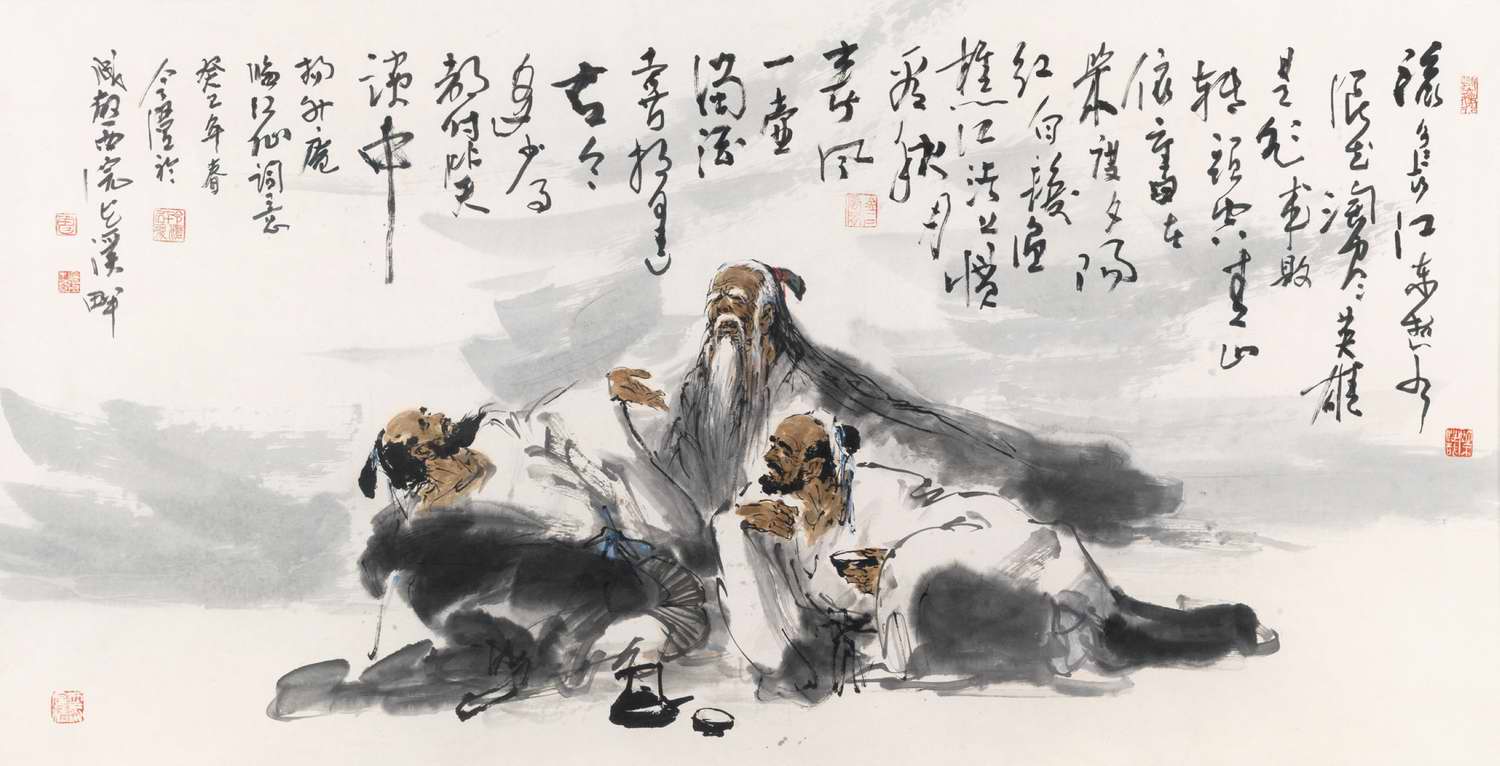 滚滚长江东逝水
浪花淘尽英雄
是非成败
转頭空青山
依舊在
幾度夕陽
红白髮渔
樵江渚上惯
看秋月
春风
一壶
濁酒
喜相逢
古今
多少事
都付笑
谈中
杨升庵
临江仙词意
癸巳年春
於
成都西浣花溪畔